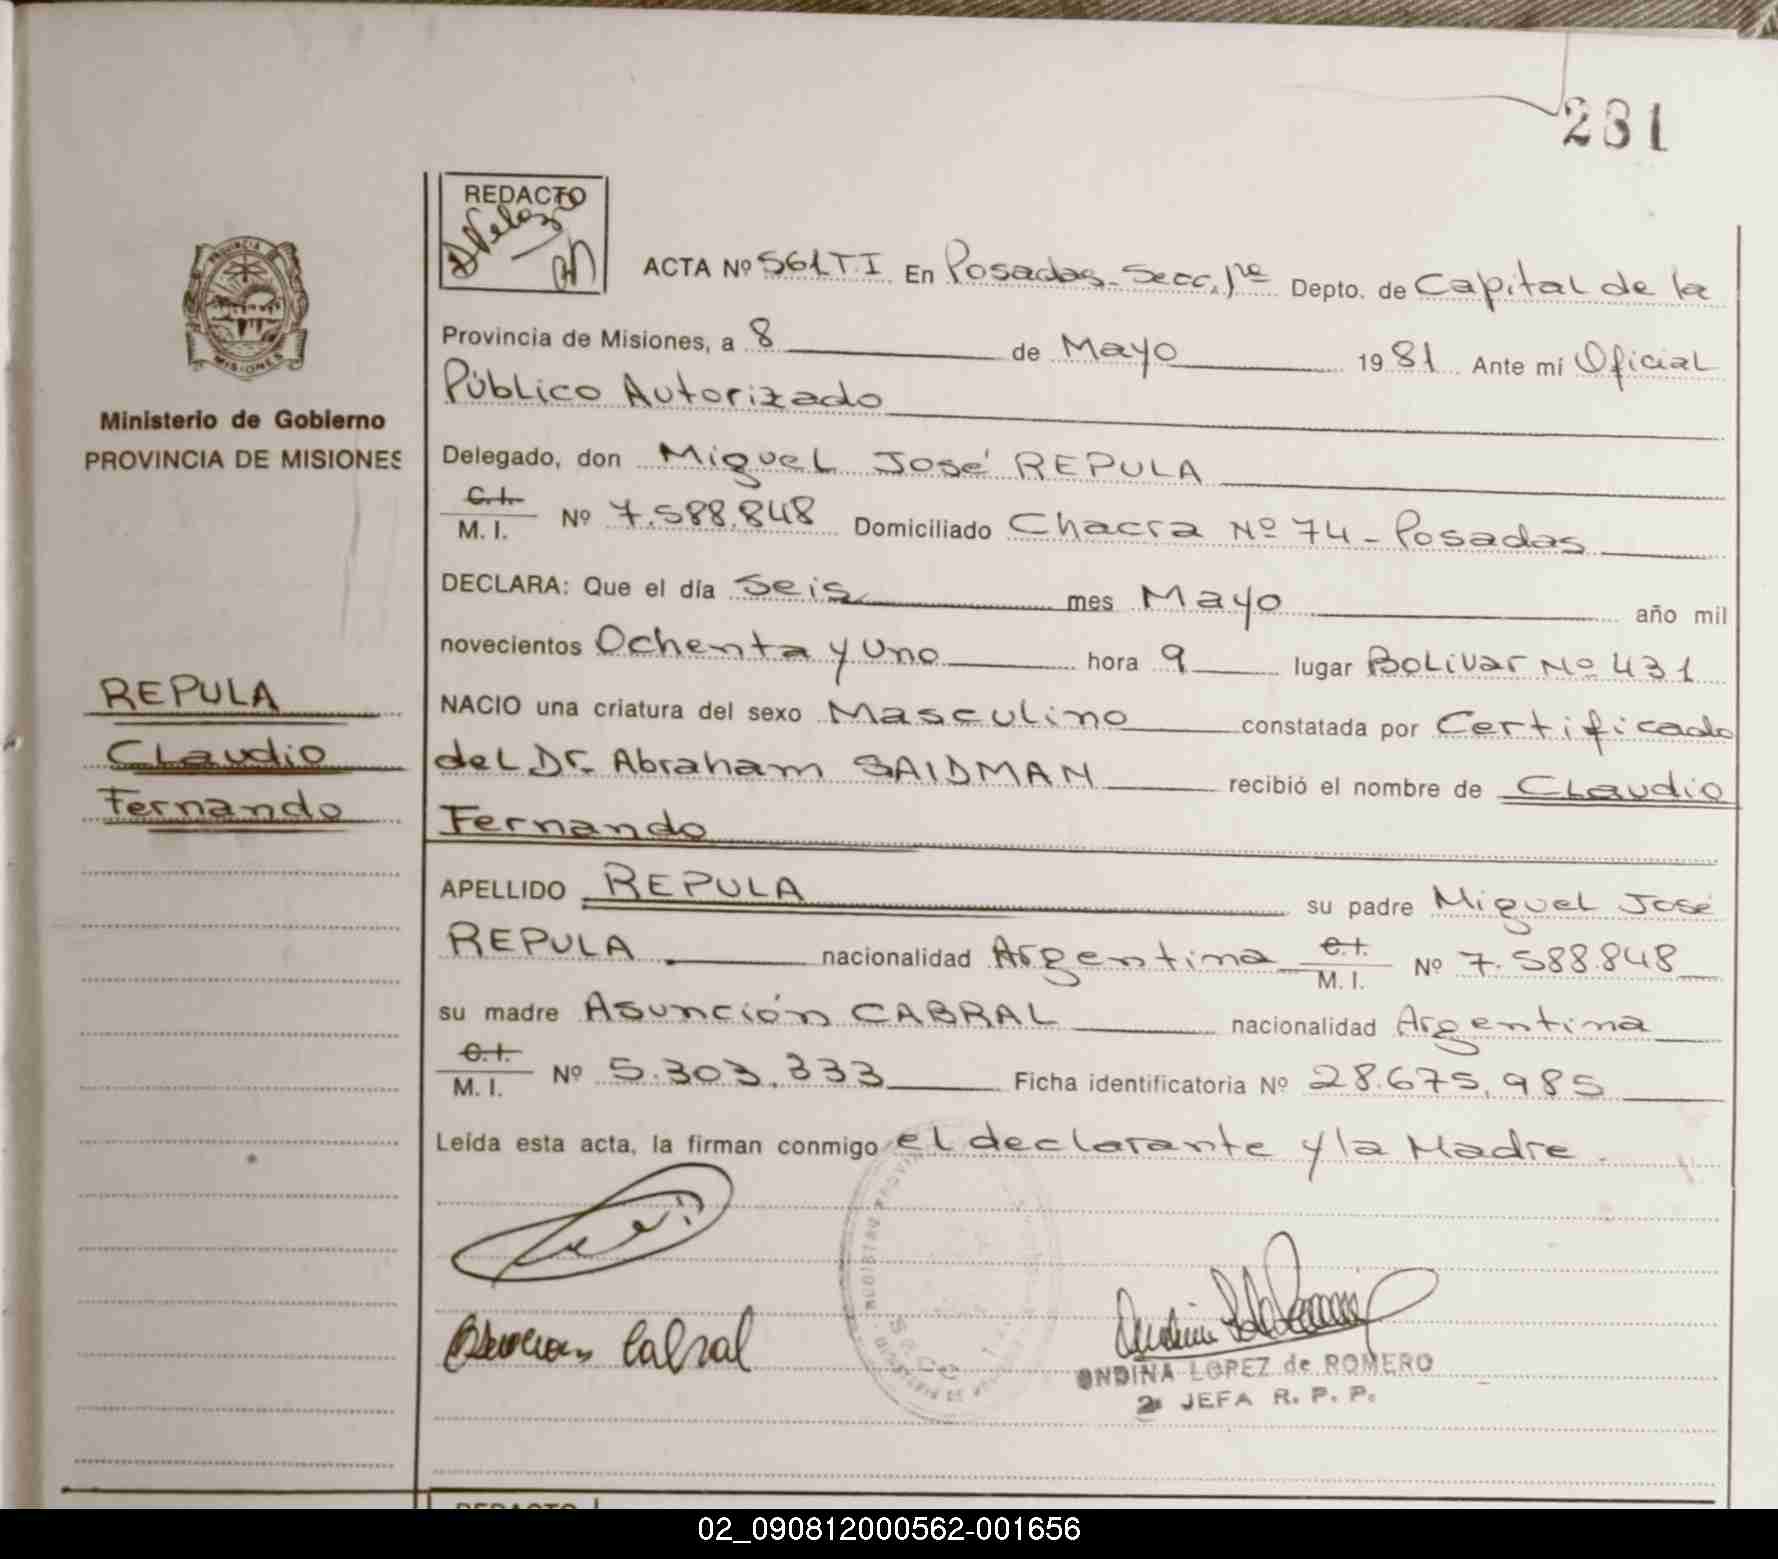 231
REDACTO
ACTA Nº 561 T.I En Posadas - Secc. 1ra Depto. de Capital de la
Provincia de Misiones, a 8 de Mayo 1981 Ante mi Oficial
Público Autorizado
Delegado, don Miguel José REPULA
C.I.
M. I. Nº 7.588.848 Domiciliado Chacra Nº 74 - Posadas
DECLARA: Que el día Seis mes Mayo año mil
novecientos Ochenta y Uno hora 9 lugar Bolivar Nº 431
NACIO una criatura del sexo Masculino constatada por Certificado
del Dr. Abraham SAIDMAN recibió el nombre de Claudio
Fernando
APELLIDO REPULA su padre Miguel José
REPULA nacionalidad Argentina C.I.
M. I. Nº 7.588.848
su madre Asunción CABRAL nacionalidad Argentina
C.I.
M. I. Nº 5.303.333 Ficha identificatoria Nº 28.675.985
Leída esta acta, la firman conmigo el declarante y la Madre.
PROVINCIA
MISIONES
Ministerio de Gobierno
PROVINCIA DE MISIONES
REPULA
Claudio
Fernando
Asuncion Cabral
ONDINA LOPEZ de ROMERO
2ª JEFA R. P. P.
REDACTO
02_090812000562-001656